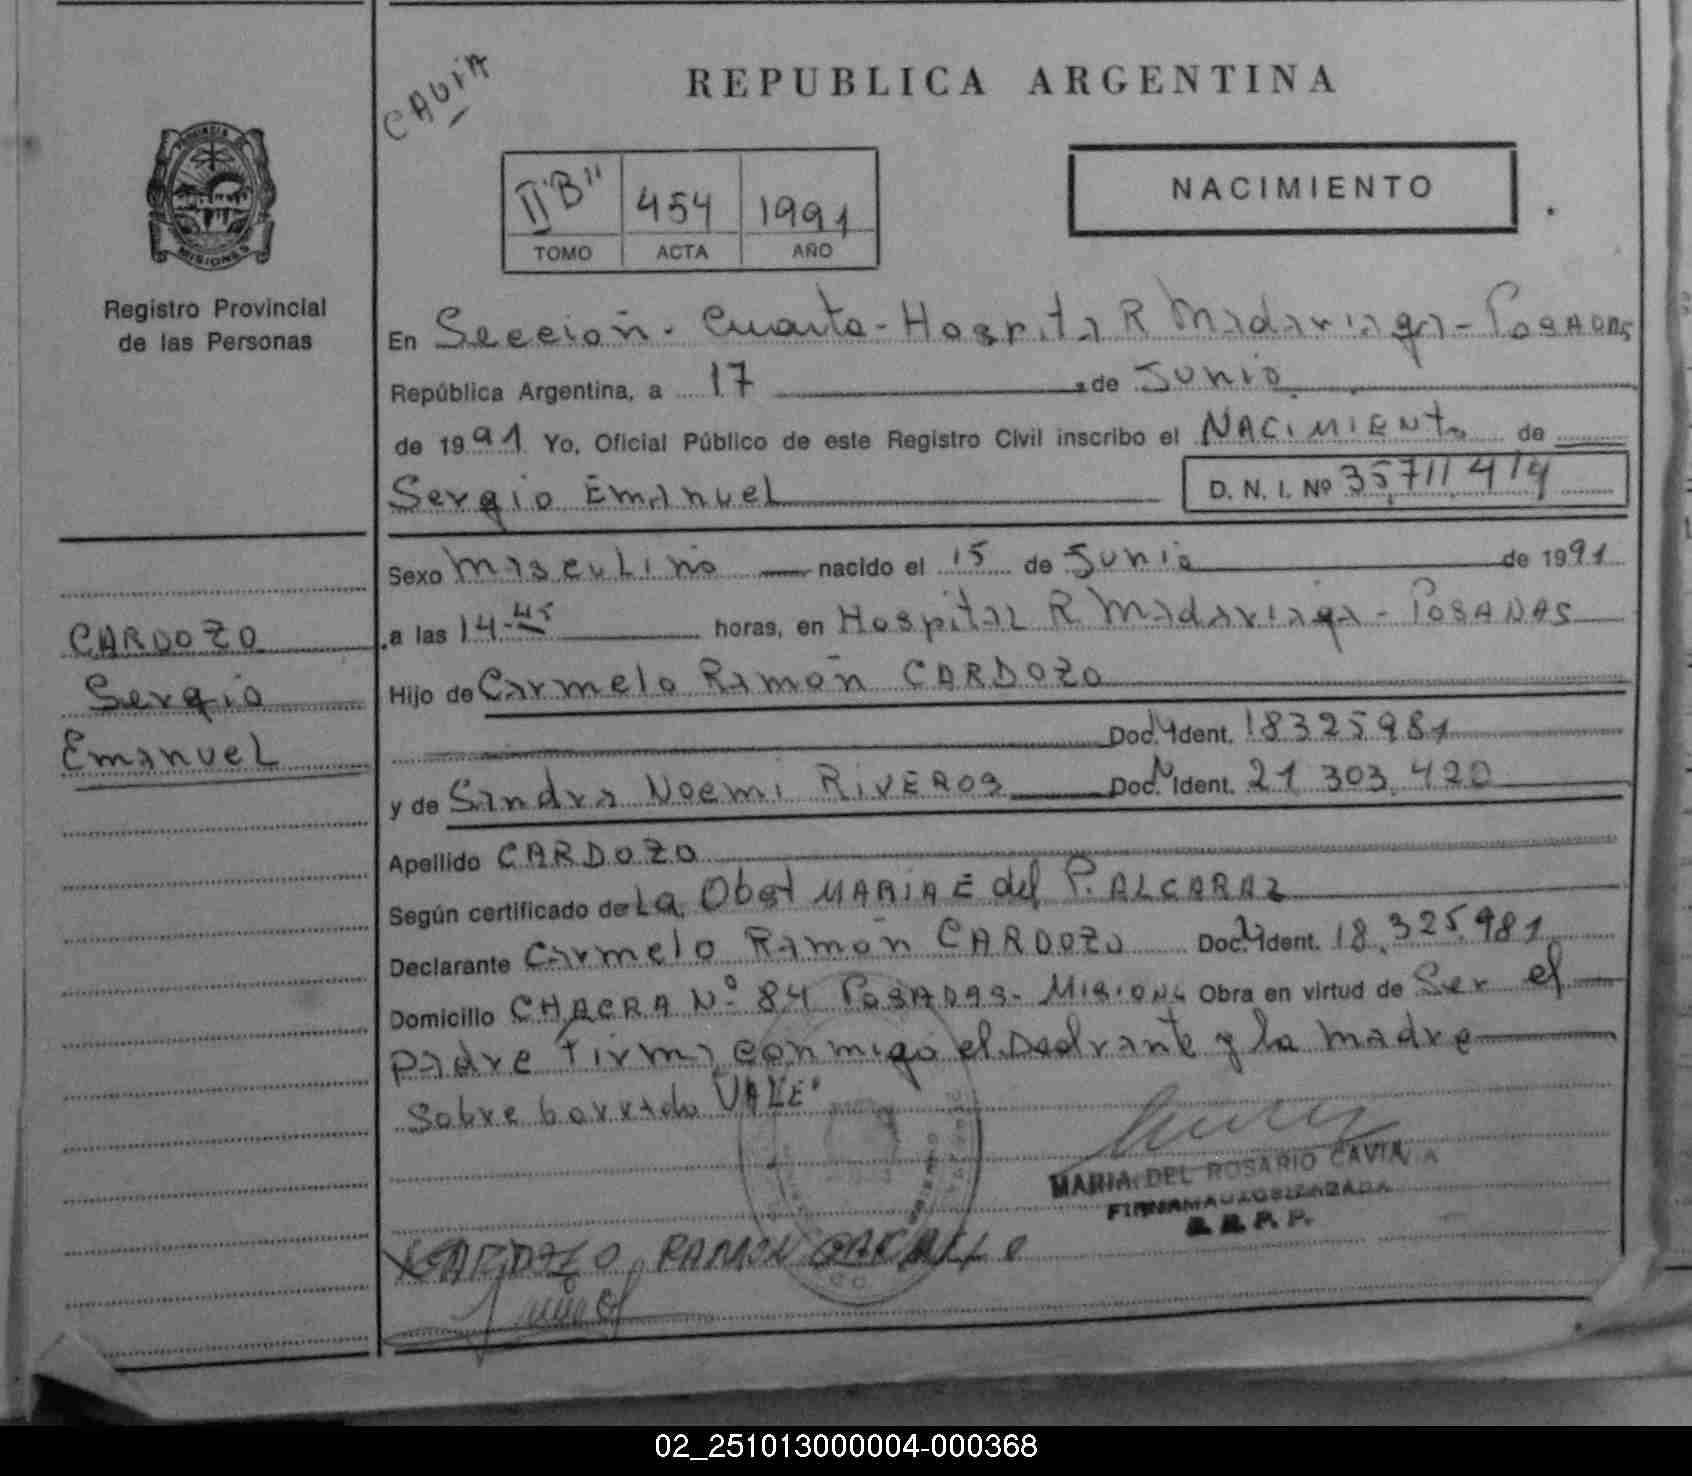 CAVIA
REPUBLICA ARGENTINA
PROVINCIA DE
MISIONES
Registro Provincial
de las Personas
II "B" 454 1991
TOMO ACTA AÑO
NACIMIENTO
En Sección - Cuarta - Hospital R Madariaga - POSADAS
República Argentina, a 17 de Junio
de 1991 Yo, Oficial Público de este Registro Civil inscribo el NACIMIENTO de
Sergio Emanuel D. N. I. Nº 35.711.414
Sexo masculino nacido el 15 de Junio de 1991
a las 14-45 horas, en Hospital R Madariaga - POSADAS
Hijo de Carmelo Ramón CARDOZO
Doc. Ident. 18325981
y de Sandra Noemi RIVEROS Doc. Ident. 21 303.420
Apellido CARDOZO
Según certificado de La Obst MARIA E del P. ALCARAZ
Declarante Carmelo Ramón CARDOZO Doc. Ident. 18.325.981
Domicilio CHACRA Nº 84 POSADAS - Misiones Obra en virtud de Ser el
padre Firma conmigo el declarante y la madre
Sobre borrado "VALE"
CARDOZO
Sergio
Emanuel
MARIA DEL ROSARIO CAVIA
FIRMA AUTORIZADA
R. P. P.
CARDOZO RAMON CARMELO
02_251013000004-000368